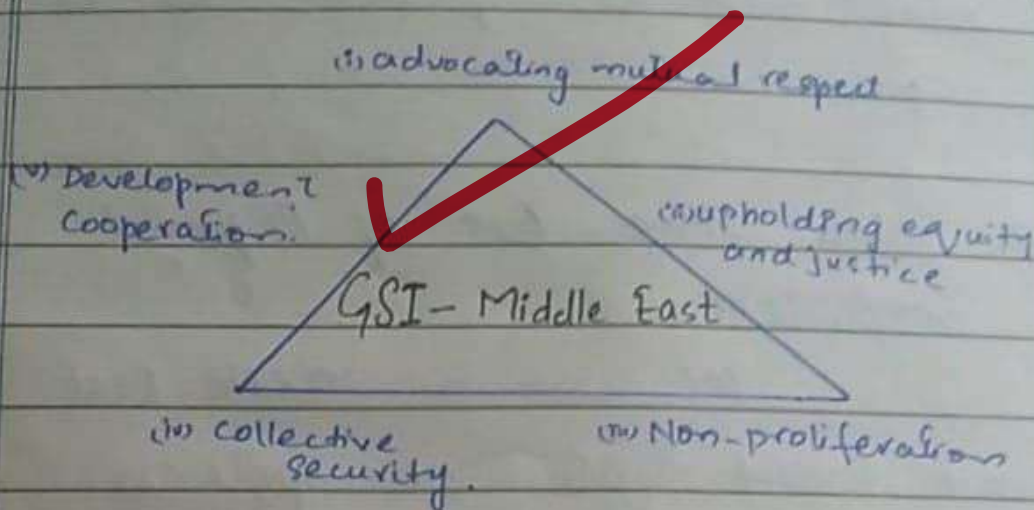 (i) advocating mutual respect
(v) Development
cooperation.
(ii) upholding equity
and justice
GSI - Middle East
(iv) collective
security.
(iii) Non-proliferation